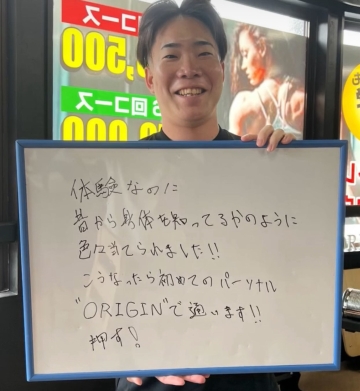 コース
,500
6回コース
体験なのに
昔から身体を知ってるかのように
色々当てられました!!
こうなったら初めてのパーソナル
"ORIGIN"で通います!!
押す!